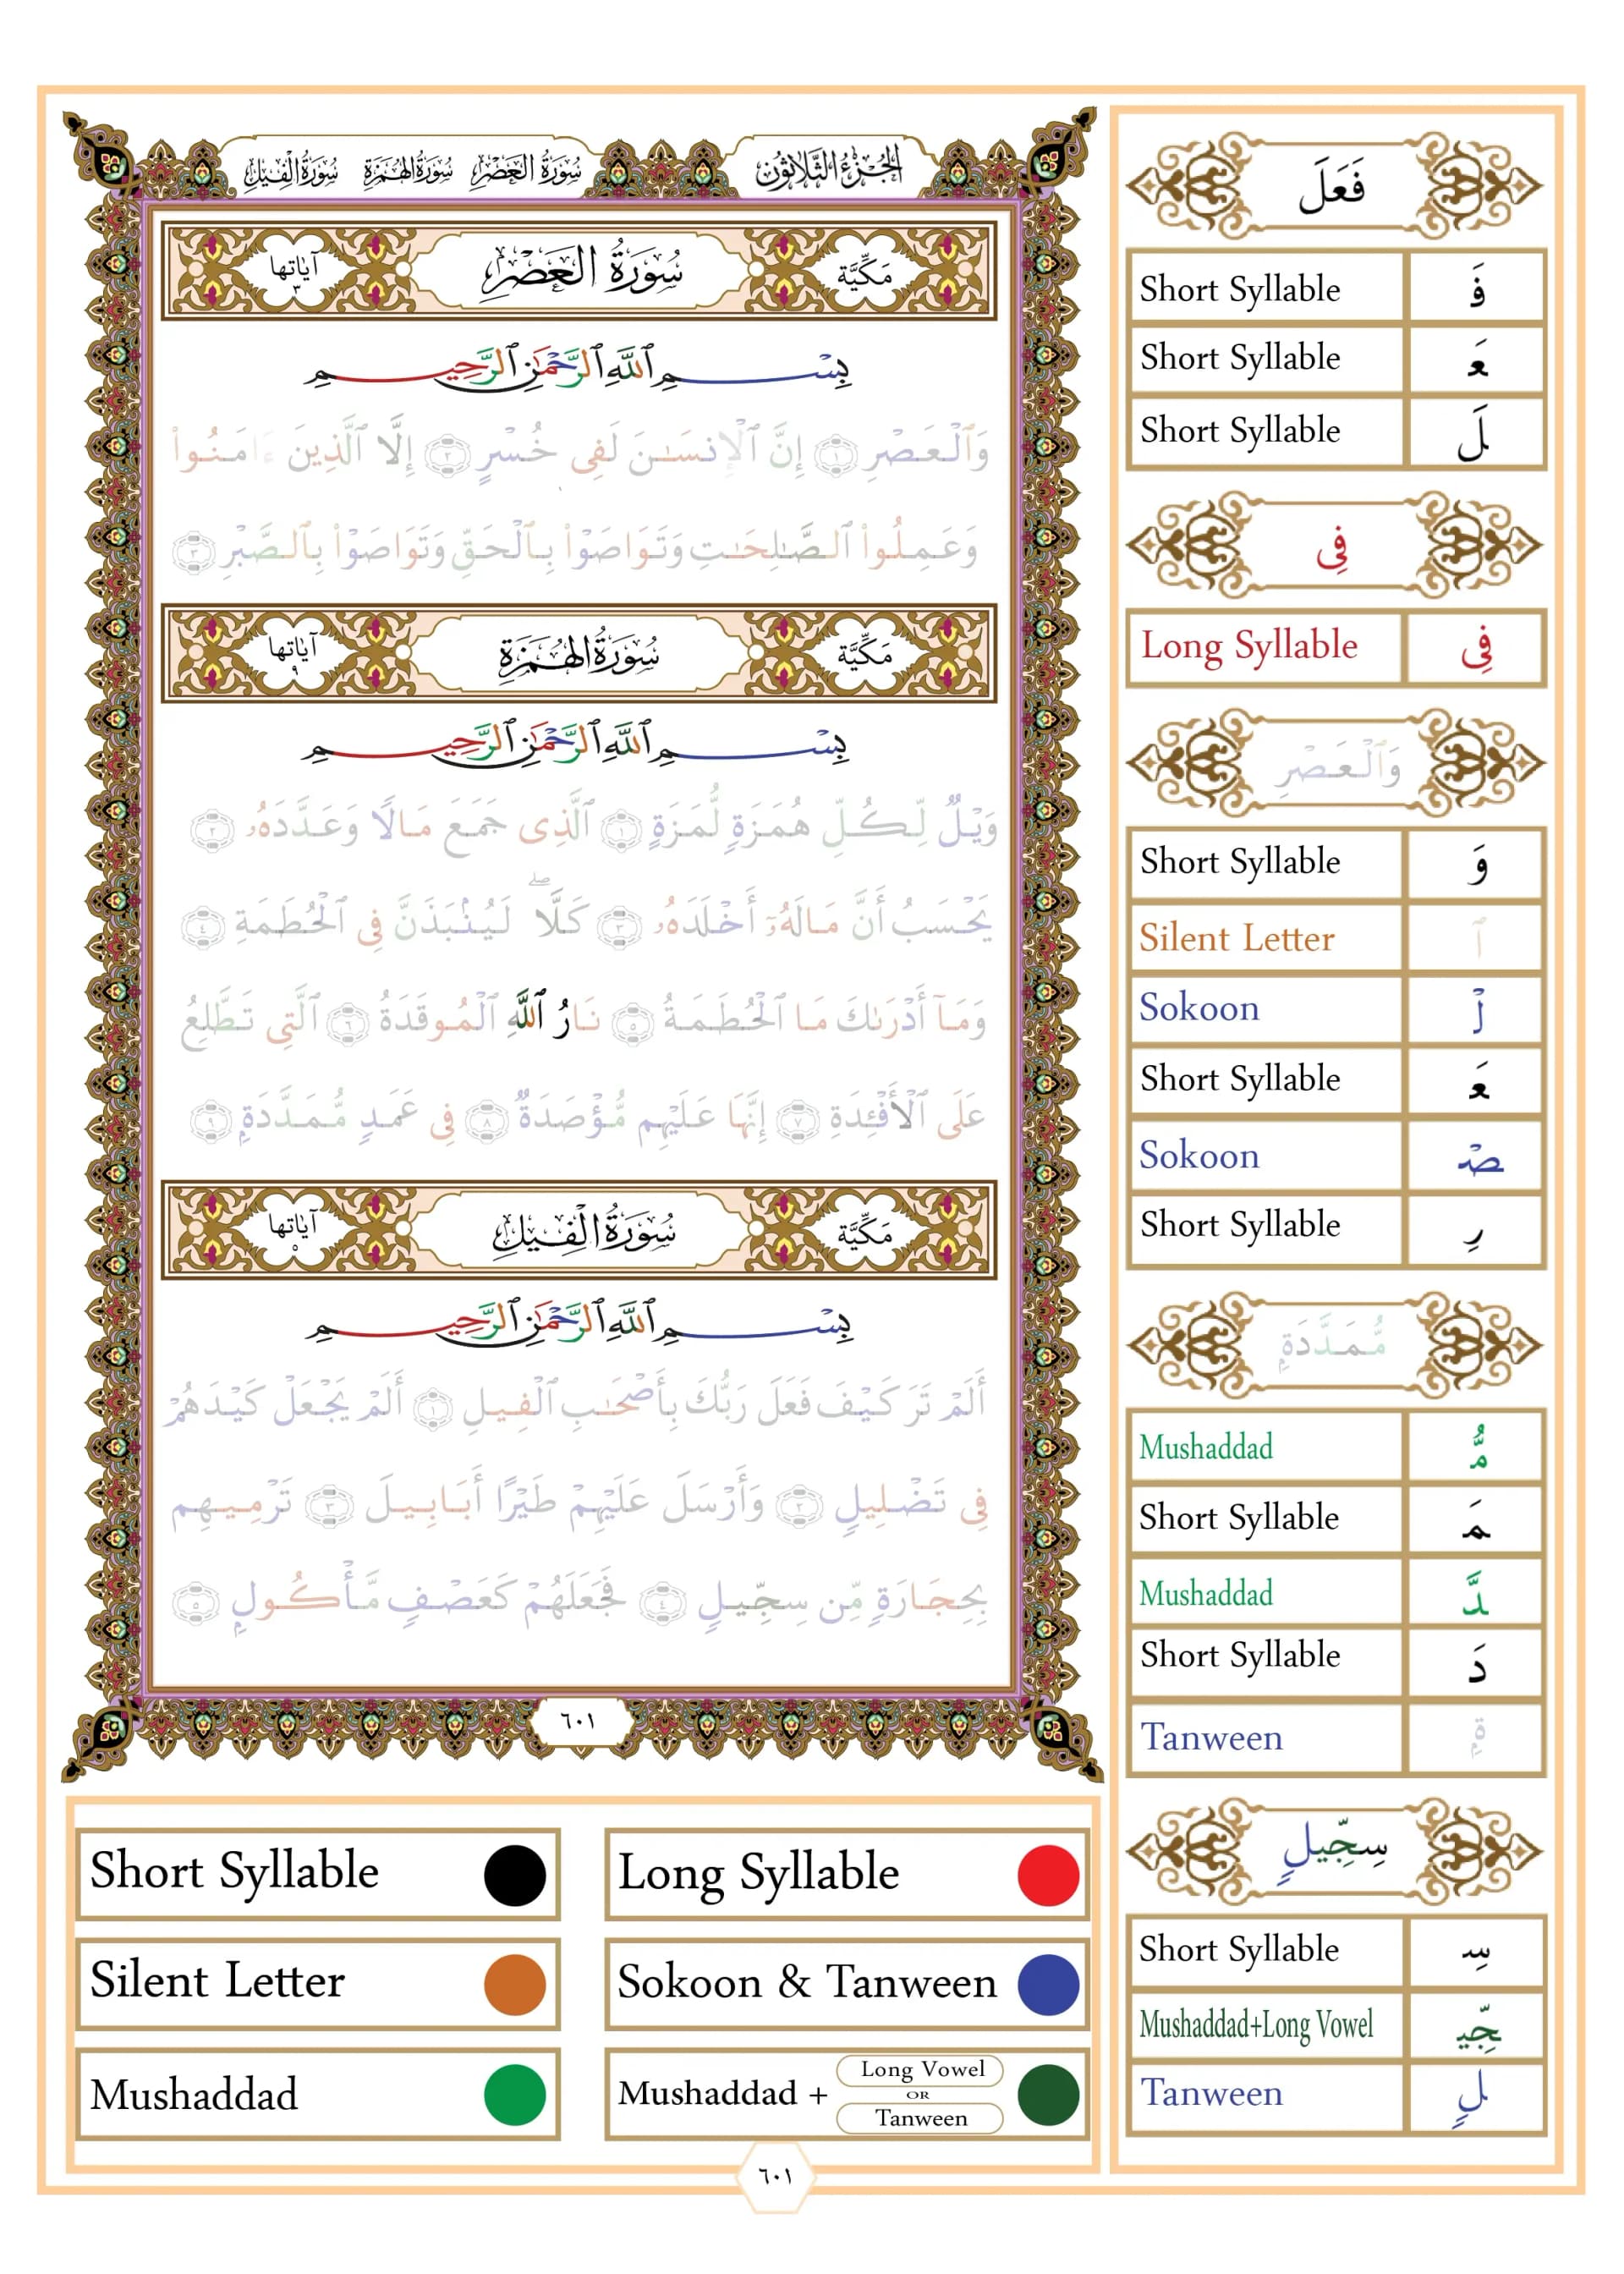 الجزء الثلاثون
سورة العصر سورة الهمزة سورة الفيل
مَكِّيَّة
سُورَةُ العَصْرِ
آياتها ٣
بِسْمِ ٱللَّهِ ٱلرَّحْمَٰنِ ٱلرَّحِيمِ
وَٱلْعَصْرِ ١ إِنَّ ٱلْإِنسَٰنَ لَفِى خُسْرٍ ٢ إِلَّا ٱلَّذِينَ ءَامَنُوا۟
وَعَمِلُوا۟ ٱلصَّٰلِحَٰتِ وَتَوَاصَوْا۟ بِٱلْحَقِّ وَتَوَاصَوْا۟ بِٱلصَّبْرِ ٣
مَكِّيَّة
سُورَةُ الهُمَزَة
آياتها ٩
بِسْمِ ٱللَّهِ ٱلرَّحْمَٰنِ ٱلرَّحِيمِ
وَيْلٌ لِّكُلِّ هُمَزَةٍ لُّمَزَةٍ ١ ٱلَّذِى جَمَعَ مَالًا وَعَدَّدَهُۥ ٢
يَحْسَبُ أَنَّ مَالَهُۥٓ أَخْلَدَهُۥ ٣ كَلَّا ۖ لَيُنۢبَذَنَّ فِى ٱلْحُطَمَةِ ٤
وَمَآ أَدْرَىٰكَ مَا ٱلْحُطَمَةُ ٥ نَارُ ٱللَّهِ ٱلْمُوقَدَةُ ٦ ٱلَّتِى تَطَّلِعُ
عَلَى ٱلْأَفْـِٔدَةِ ٧ إِنَّهَا عَلَيْهِم مُّؤْصَدَةٌ ٨ فِى عَمَدٍ مُّمَدَّدَةٍۭ ٩
مَكِّيَّة
سُورَةُ الْفِيلِ
آياتها ٥
بِسْمِ ٱللَّهِ ٱلرَّحْمَٰنِ ٱلرَّحِيمِ
أَلَمْ تَرَ كَيْفَ فَعَلَ رَبُّكَ بِأَصْحَٰبِ ٱلْفِيلِ ١ أَلَمْ يَجْعَلْ كَيْدَهُمْ
فِى تَضْلِيلٍ ٢ وَأَرْسَلَ عَلَيْهِمْ طَيْرًا أَبَابِيلَ ٣ تَرْمِيهِم
بِحِجَارَةٍ مِّن سِجِّيلٍ ٤ فَجَعَلَهُمْ كَعَصْفٍ مَّأْكُولٍۭ ٥
٦٠١
فَعَلَ
Short Syllable فَ
Short Syllable عَ
Short Syllable لَ
فِى
Long Syllable فِى
وَٱلْعَصْرِ
Short Syllable وَ
Silent Letter ٱ
Sokoon لْ
Short Syllable عَ
Sokoon صْ
Short Syllable رِ
مُّمَدَّدَةٍۭ
Mushaddad مُّ
Short Syllable مَ
Mushaddad دَّ
Short Syllable دَ
Tanween ةٍۭ
سِجِّيلٍ
Short Syllable سِ
Mushaddad+Long Vowel جِّي
Tanween لٍ
Short Syllable
Long Syllable
Silent Letter
Sokoon & Tanween
Mushaddad
Mushaddad + Long Vowel OR Tanween
٦٠١